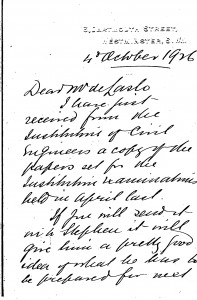 3, DARTMOUTH STREET,
WESTMINSTER, S.W.
4th October 1926
Dear Mr de Laslo
I have just
received from the
Institution of Civil
Engineers a copy of the
papers set for the
Institution examinations
held in April last.
If you will send it
with Stephen it will
give him a pretty good
idea of what he has to
be prepared for next